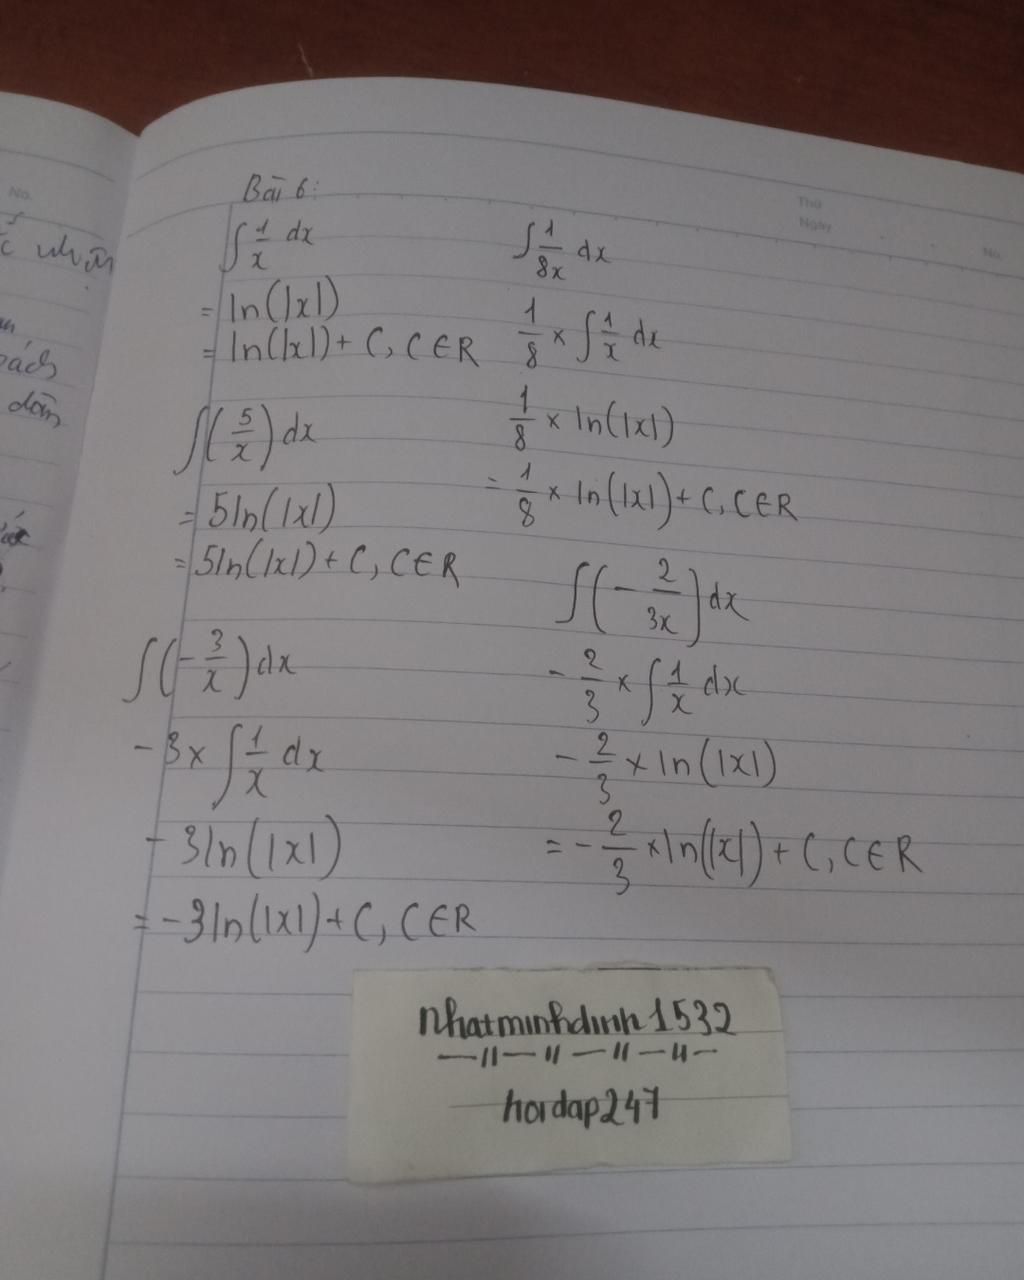 Bài 6:
∫ 1/x dx
= ln(|x|)
= ln(|x|) + C, C∈R
∫(5/x)dx
= 5ln(|x|)
= 5ln(|x|) + C, C∈R
∫(-3/x)dx
- 3 x ∫ 1/x dx
- 3ln(|x|)
= -3ln(|x|) + C, C∈R
∫ 1/8x dx
1/8 x ∫ 1/x dx
1/8 x ln(|x|)
= 1/8 x ln(|x|) + C, C∈R
∫(- 2/3x)dx
- 2/3 x ∫ 1/x dx
- 2/3 x ln(|x|)
= - 2/3 x ln(|x|) + C, C∈R
nhatminhdinh1532
hoidap247
Thứ
Ngày
No.
No.
dồn